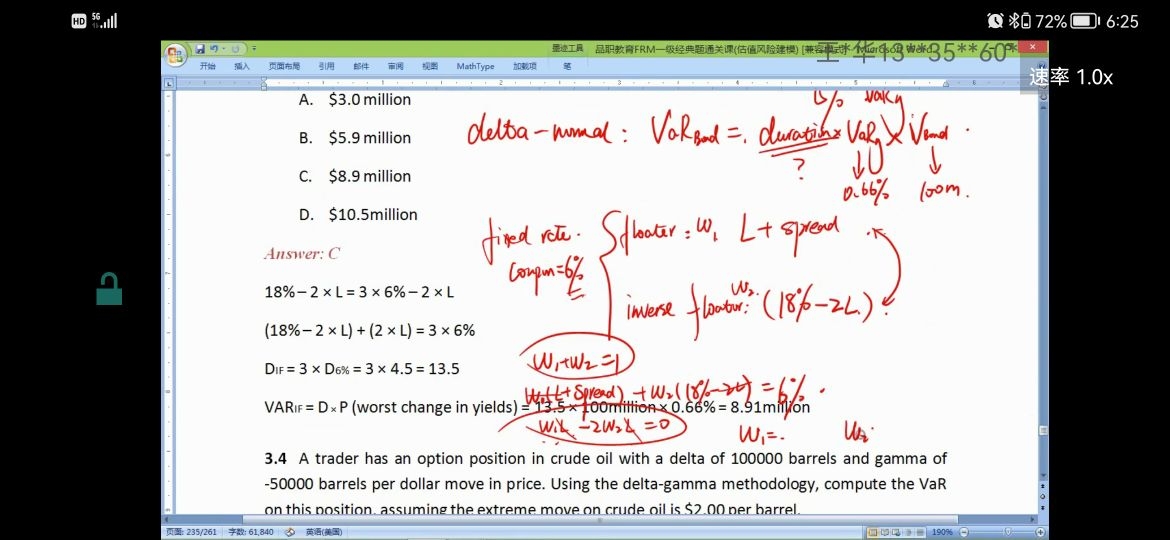 HD 5G 72% 6:25
墨迹工具 品职教育FRM一级经典题通关课(估值风险建模) [兼容模式]
开始 插入 页面布局 引用 邮件 审阅 视图 MathType 加载项 笔
速率 1.0x
A. $3.0 million
B. $5.9 million
C. $8.9 million
D. $10.5million
delta-normal : VaR Bond = duration × VaRy × VBond
?
0.66% 100m.
fixed rate.
coupon=6%
floater : W1 L + spread
inverse floater: W2 (18%-2L)
Answer: C
18% − 2 × L = 3 × 6% − 2 × L
(18% − 2 × L) + (2 × L) = 3 × 6%
DIF = 3 × D6% = 3 × 4.5 = 13.5
W1+W2=1
W1(L+spread) + W2(18%-2L) = 6%
VARIF = D × P (worst change in yields) = 13.5 × 100million × 0.66% = 8.91million
W1L - 2W2L = 0
W1= W2
3.4 A trader has an option position in crude oil with a delta of 100000 barrels and gamma of
-50000 barrels per dollar move in price. Using the delta-gamma methodology, compute the VaR
on this position, assuming the extreme move on crude oil is $2.00 per barrel.
页面: 235/261 字数: 61,840 英语(美国) 190%